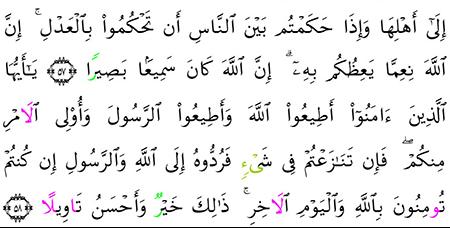 إِلَىٰٓ أَهْلِهَا وَإِذَا حَكَمْتُم بَيْنَ ٱلنَّاسِ أَن تَحْكُمُوا۟ بِٱلْعَدْلِ ۚ إِنَّ
ٱللَّهَ نِعِمَّا يَعِظُكُم بِهِۦٓ ۗ إِنَّ ٱللَّهَ كَانَ سَمِيعًۢا بَصِيرًا ﴿٥٧﴾ يَـٰٓأَيُّهَا
ٱلَّذِينَ ءَامَنُوٓا۟ أَطِيعُوا۟ ٱللَّهَ وَأَطِيعُوا۟ ٱلرَّسُولَ وَأُو۟لِى ٱلَامْرِ
مِنكُمْ ۖ فَإِن تَنَـٰزَعْتُمْ فِى شَىْءٍ فَرُدُّوهُ إِلَى ٱللَّهِ وَٱلرَّسُولِ إِن كُنتُمْ
تُومِنُونَ بِٱللَّهِ وَٱلْيَوْمِ ٱلَاخِرِ ۚ ذَٰلِكَ خَيْرٌ وَأَحْسَنُ تَاوِيلًا ﴿٥٨﴾